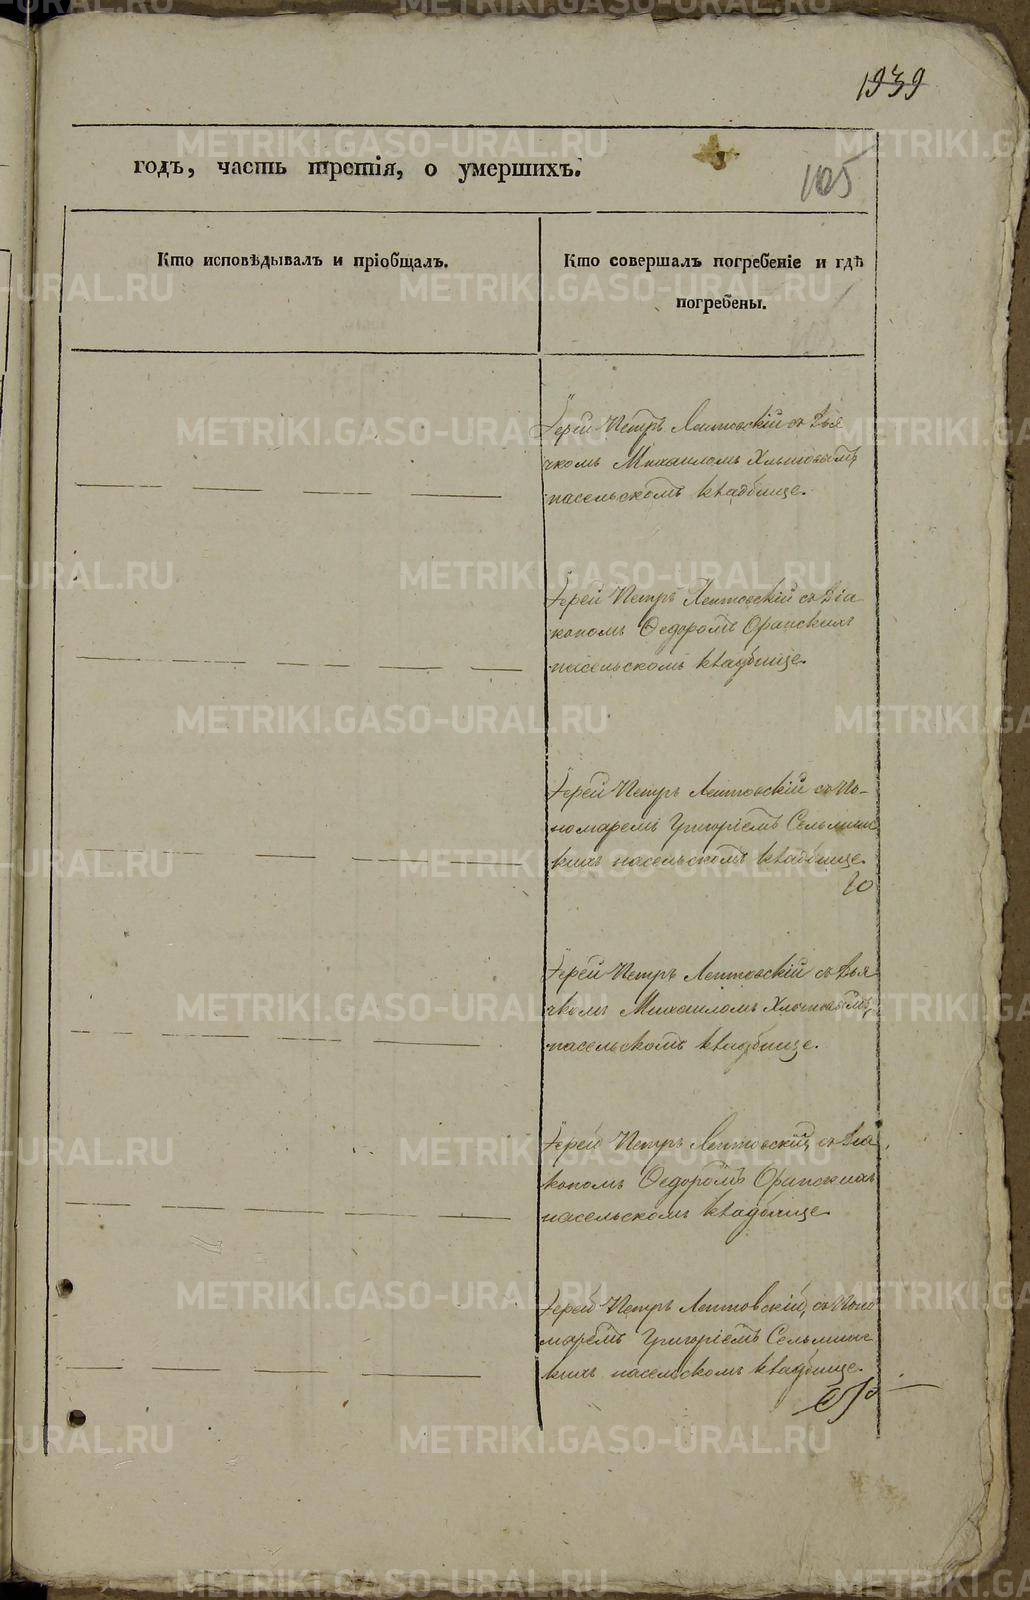 1939
годъ, часть третія, о умершихъ.
105
Кто исповѣдывалъ и пріобщалъ.
Кто совершалъ погребеніе и гдѣ
погребены.
Іерей Петръ Лептовскій съ Дья
чкомъ Михаиломъ
насельскомъ кладбище.
Іерей Петръ Лептовскій съ Діа
кономъ Ѳедоромъ
насельскомъ кладбище.
Іерей Петръ Лептовскій съ По-
номаремъ Григоріемъ
насельскомъ кладбище.
Іерей Петръ Лептовскій съ Дья
чкомъ Михаиломъ
насельскомъ кладбище.
Іерей Петръ Лептовскій, съ Діа
кономъ Ѳедоромъ
насельскомъ кладбище.
Іерей Петръ Лептовскій, съ Поно
маремъ Григоріемъ
насельскомъ кладбище.
METRIKI.GASO-URAL.RU